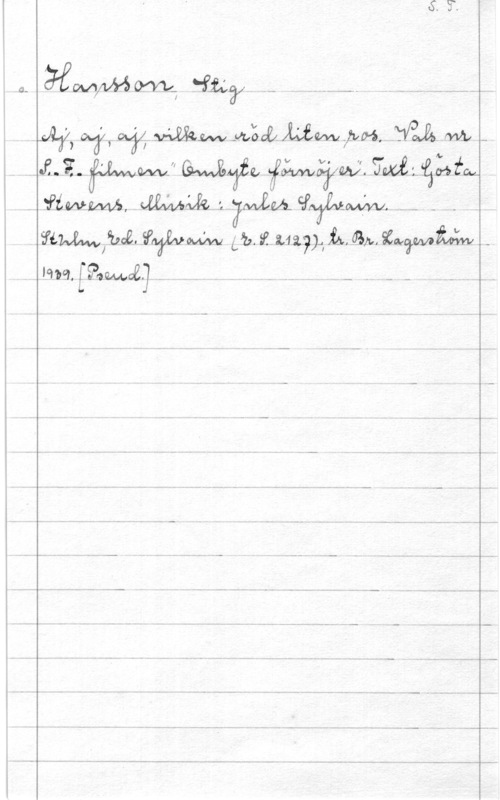 S. F.
Hansson, Stig
Aj, aj, aj, vilken röd liten ros. Vals ur
S. F. filmen "Ombyte förnöjer". Text: Gösta
Stevens. Musik: Jules Sylvain.
Sthlm, Ed. Sylvain (E. S. 2127); tr. Br. Lagerström
1939. [Pseud.]